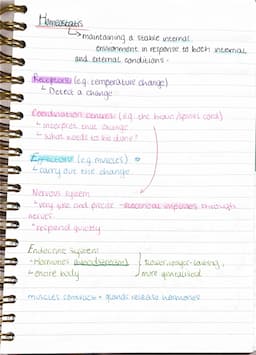 Homeostasis
↳ maintaining a stable internal
environment in response to both internal
and external conditions.
Receptors (e.g. temperature change)
↳ Detect a change
Coordination centres (e.g. the brain/spinal cord)
↳ interprets that change
↳ What needs to be done?
Effectors (e.g. muscles)
↳ carry out the change
Nervous system
• very fast and precise - electrical impulses through
nerves
• respond quickly
Endocrine system
• Hormones (bloodstream)
↳ whole body
slower, longer-lasting,
more generalised
muscles contract + glands release hormones